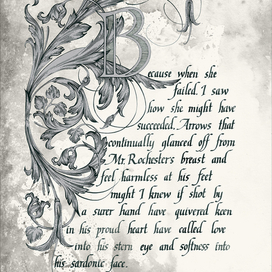 Because when she
failed, I saw
how she might have
succeeded. Arrows that
continually glanced off from
Mr. Rochester's breast and
fell harmless at his feet
might I knew if shot by
a surer hand have quivered keen
in his proud heart have called love
into his stern eye and softness into
his sardonic face.